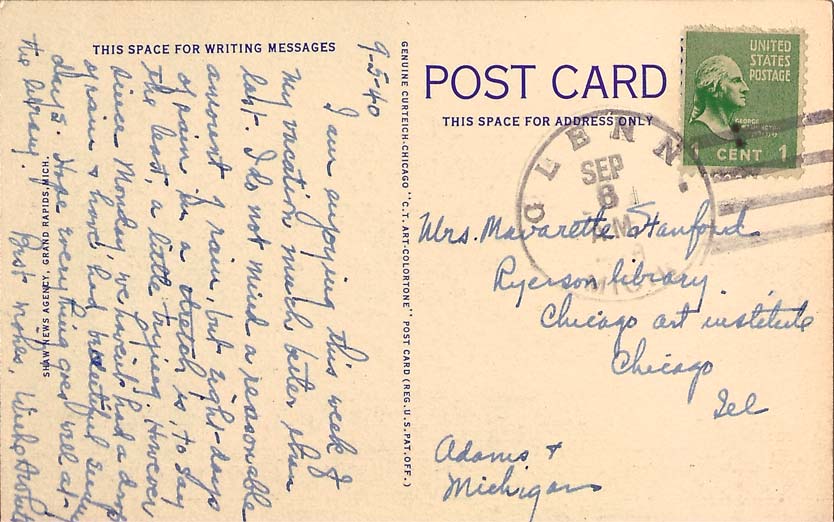 THIS SPACE FOR WRITING MESSAGES
9-5-40
I am enjoying this week of
my vacation much better than
last. I do not mind a reasonable
amount of rain, but eight-days
of rain in a stretch is, to say
the least, a little trying. However
since Monday, we haven't had a drop
of rain & have had beautiful sunny
days. Hope everything goes well at
the library.
Best wishes,
SHAW NEWS AGENCY, GRAND RAPIDS, MICH.
GENUINE CURTEICH-CHICAGO "C.T. ART-COLORTONE" POST CARD (REG. U.S. PAT. OFF.)
POST CARD
THIS SPACE FOR ADDRESS ONLY
UNITED
STATES
POSTAGE
GEORGE
WASHINGTON
1 CENT 1
GLENN.
SEP
6
AM
MICH.
Mrs. Mavarette Stanford
Ryerson library
Chicago art institute
Chicago
Ill
Adams &
Michigan